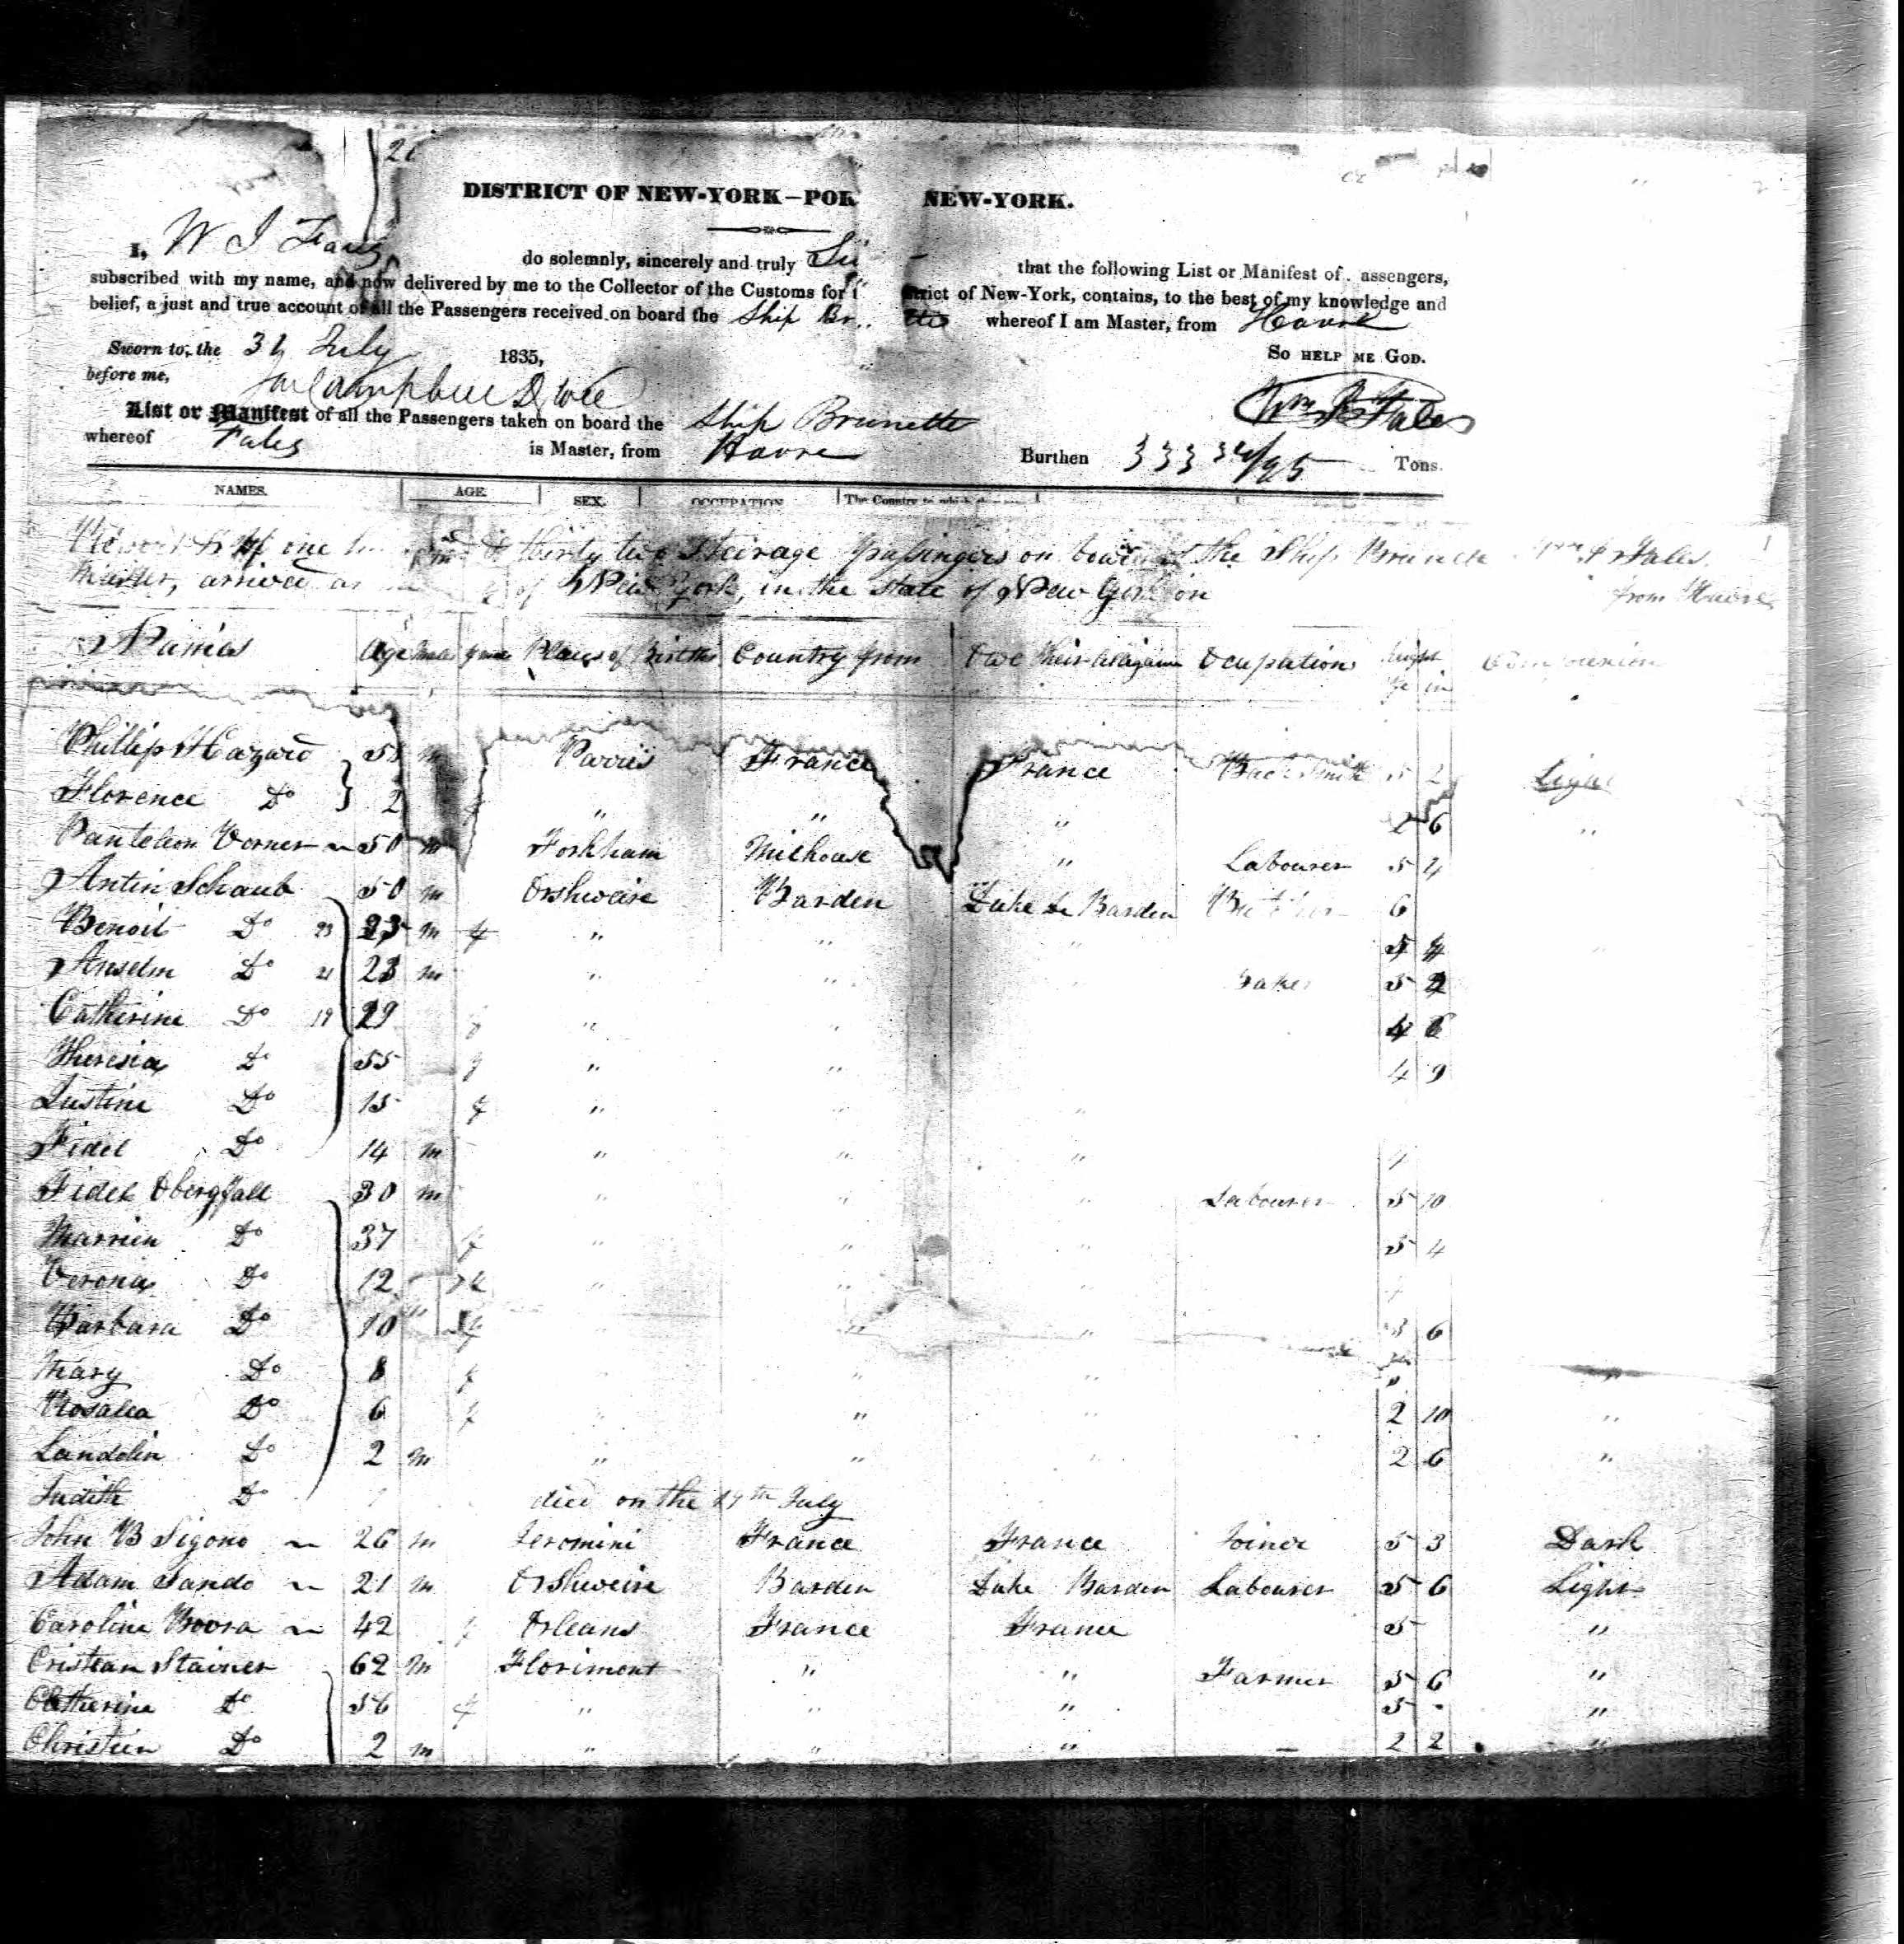 DISTRICT OF NEW-YORK—POR NEW-YORK.
I, W J do solemnly, sincerely and truly that the following List or Manifest of assengers,
subscribed with my name, and now delivered by me to the Collector of the Customs for strict of New-York, contains, to the best of my knowledge and
belief, a just and true account of all the Passengers received on board the Ship Br whereof I am Master, from Havre
Sworn to, the July 1835, SO HELP ME GOD.
before me,
Wm Fales
List or Manifest of all the Passengers taken on board the Ship Brunette
whereof Fales is Master, from Havre Burthen 333 34/95 Tons.
NAMES. AGE. SEX. OCCUPATION The Country to which
of one thirty two Steirage passingers on board the Ship Fales
Master, arrived of New York, in the state of New York on from Havre
Names Age Places of Births Country from Owe their Ocupation
Phillip Hazard 58 m Parris France France 5 2 Light
Florence Do 2 " " " 2 6 "
Panteleon Vorner 50 m Forkham Milhouse " Labourer 5 4
Antin Schaub 50 m Orshweire Barden Duke de Barden 6
Benoit Do 23 23 m f " " " 5 4 "
Anselm Do 21 23 m " " " Baker 5 2
Catherine Do 19 29 f " " 4 6
Theresia Do 55 f " " 4 9
Justine Do 15 f " " "
Fidel Do 14 m " " " 4
Fidel Obergfall 30 m " " " Labourer 5 10
Do 37 f " " 5 4
Verona Do 12 f " "
Barbara Do 10 f " " 3 6
Mary Do 8 f " " " "
Rosalia Do 6 f " " " 2 10 "
Landolin Do 2 m " " " 2 6 "
Judith Do died on the 17th July
John B Sigono 26 m Jeromini France France Joiner 5 3 Dark
Adam Sando 21 m Orshweire Barden Duke Barden Labourer 5 6 Light
Caroline 42 f Orleans France France 5 "
Cristian Stainer 62 m Florimont " " Farmer 5 6 "
Catherine Do 36 f " " " 5 - "
Christien Do 2 m " " " — 2 2 "